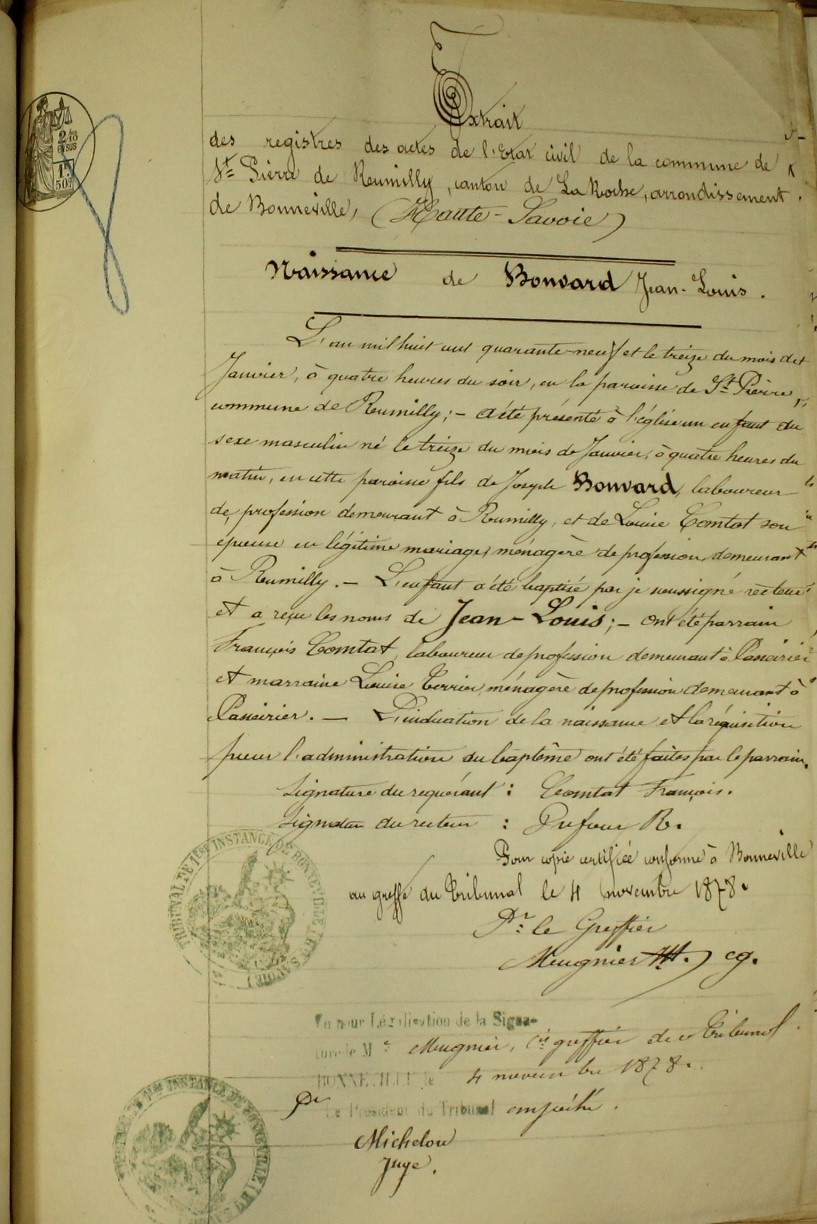 Extrait
des registres des actes de l'Etat civil de la commune de
St Pierre de Rumilly, canton de La Roche, arrondissement
de Bonneville, (Haute-Savoie)
Naissance de Bonvard Jean-Louis.
L'an mil huit cent quarante-neuf et le treize du mois de
Janvier, à quatre heures du soir, en la paroisse de St Pierre,
commune de Rumilly; – a été présenté à l'église un enfant du
sexe masculin né le treize du mois de Janvier, à quatre heures du
matin, en cette paroisse fils de Joseph Bonvard, laboureur
de profession demeurant à Rumilly, et de Louise Comtat son
épouse en légitime mariage, ménagère de profession, demeurant
à Rumilly. – L'enfant a été baptisé par je soussigné recteur
et a reçu les noms de Jean-Louis; – ont été parrain
François Comtat, laboureur de profession demeurant à Passeirier
et marraine Louise Terrier, ménagère de profession demeurant à
Passeirier. – L'indication de la naissance et la réquisition
pour l'administration du baptême ont été faites par le parrain.
Signature du requérant : Comtat François.
Signature du recteur : Dufour R.
Pour copie certifiée conforme à Bonneville
au greffe du Tribunal le 4 novembre 1878.
Pr le Greffier
Meugnier cg.
TRIBUNAL DE 1ère INSTANCE DE BONNEVILLE (HTE SAVOIE)
Vu pour Légalisation de la Signa-
ture de Mr Meugnier, cis greffier de ce Tribunal.
BONNEVILLE, le 4 novembre 1878.
Pr Le Président du Tribunal empêché.
Michelon
Juge.